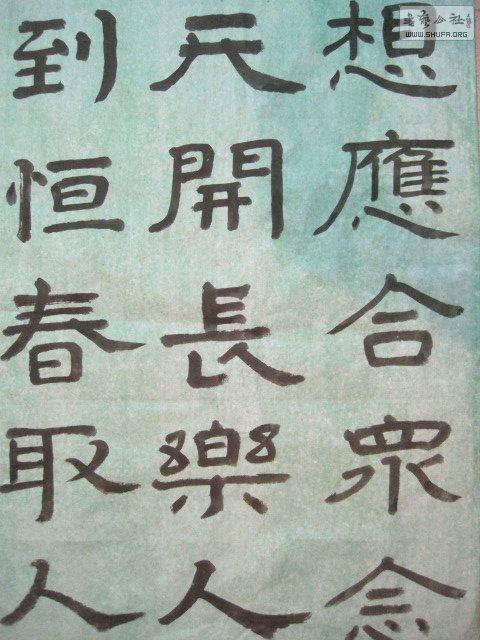 想應合衆念
天開長樂人
到恒春取人
書藝公社
WWW.SHUFA.ORG